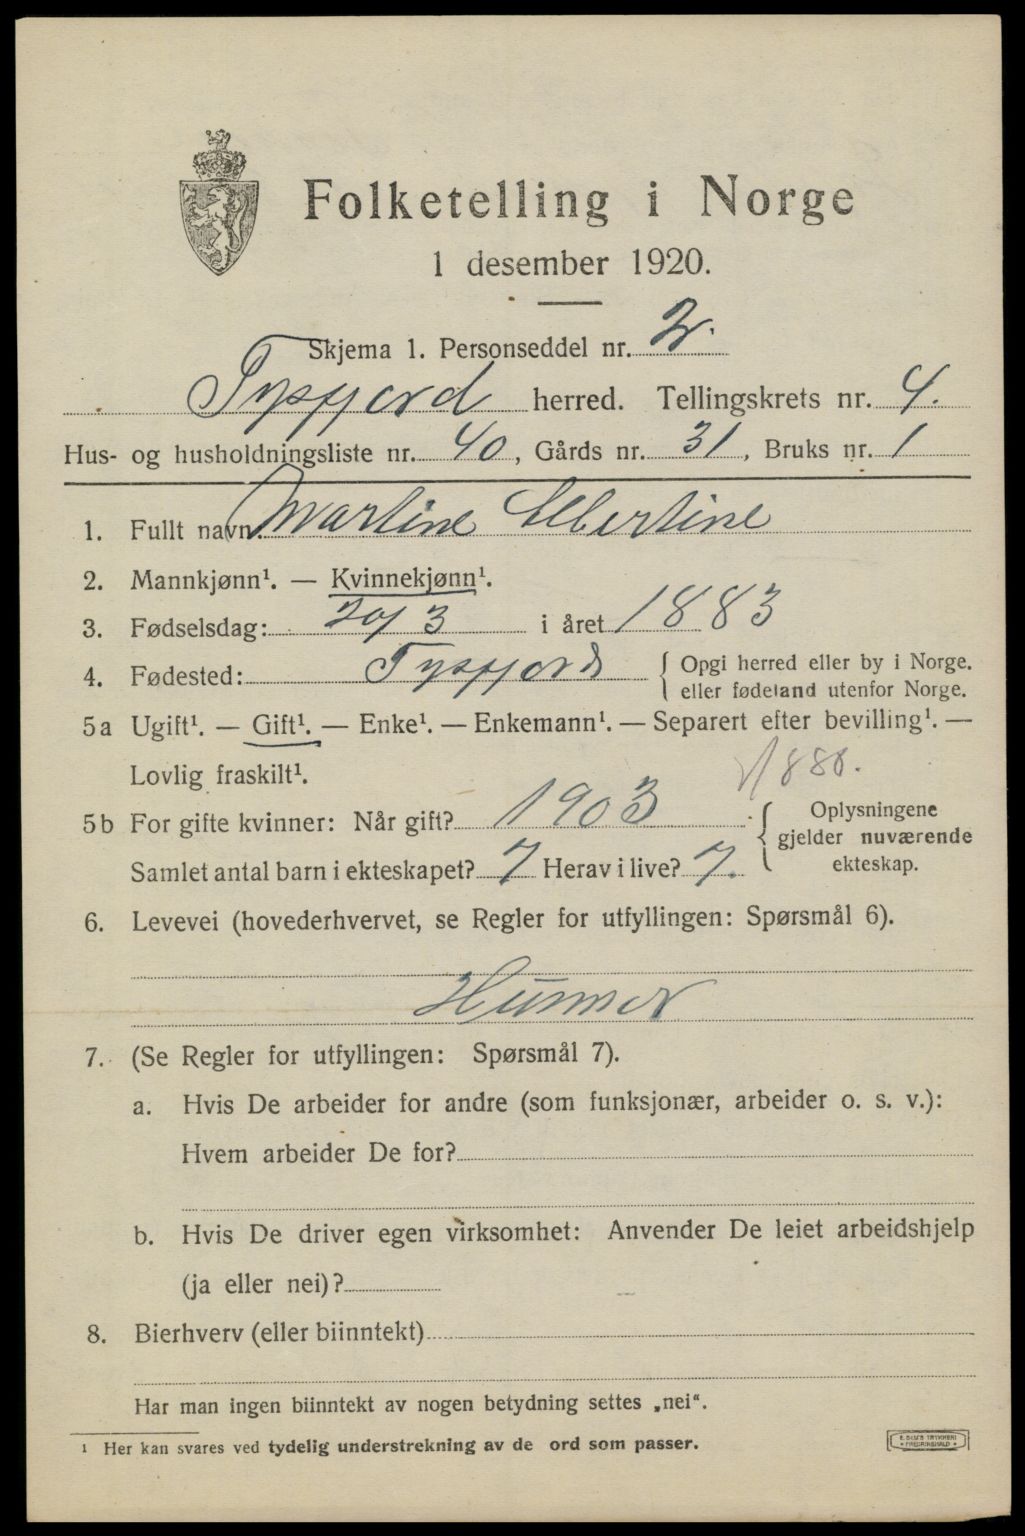 Folketelling i Norge
1 desember 1920.
Skjema 1. Personseddel nr. 2.
Tysfjord herred. Tellingskrets nr. 4.
Hus- og husholdningsliste nr. 40, Gårds nr. 31, Bruks nr. 1
1. Fullt navn: Martine Albertine
2. Mannkjønn¹. — Kvinnekjønn¹.
3. Fødselsdag: 20/3 i året 1883
4. Fødested: Tysfjord { Opgi herred eller by i Norge.
eller fødeland utenfor Norge.
5a Ugift¹. — Gift¹. — Enke¹. — Enkemann¹. — Separert efter bevilling¹. —
Lovlig fraskilt¹.
5b For gifte kvinner: Når gift? 1903 { Oplysningene
gjelder nuværende
ekteskap.
Samlet antal barn i ekteskapet? 7 Herav i live? 7.
6. Levevei (hovederhvervet, se Regler for utfyllingen: Spørsmål 6).
Husmor
7. (Se Regler for utfyllingen: Spørsmål 7).
a. Hvis De arbeider for andre (som funksjonær, arbeider o. s. v.):
Hvem arbeider De for?
b. Hvis De driver egen virksomhet: Anvender De leiet arbeidshjelp
(ja eller nei)?
8. Bierhverv (eller biinntekt)
Har man ingen biinntekt av nogen betydning settes „nei“.
¹ Her kan svares ved tydelig understrekning av de ord som passer.